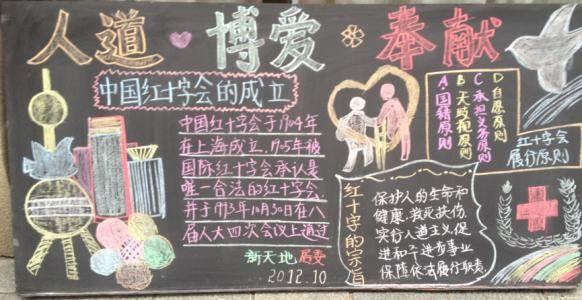 人道 博爱 奉献
中国红十字会的成立
中国红十字会于1904年
在上海成立,1905年被
国际红十字会承认是
唯一合法的红十字会
并于1993年10月30日在八
届人大四次会议上通过
新天地 居委
2012.10
红十字的宗旨
保护人的生命和
健康,救死扶伤,
实行人道主义,促
进和平进步事业,
保障依法履行职责.
A国籍原则
B无歧视原则
C承担义务原则
D自愿原则
红十字会
履行原则